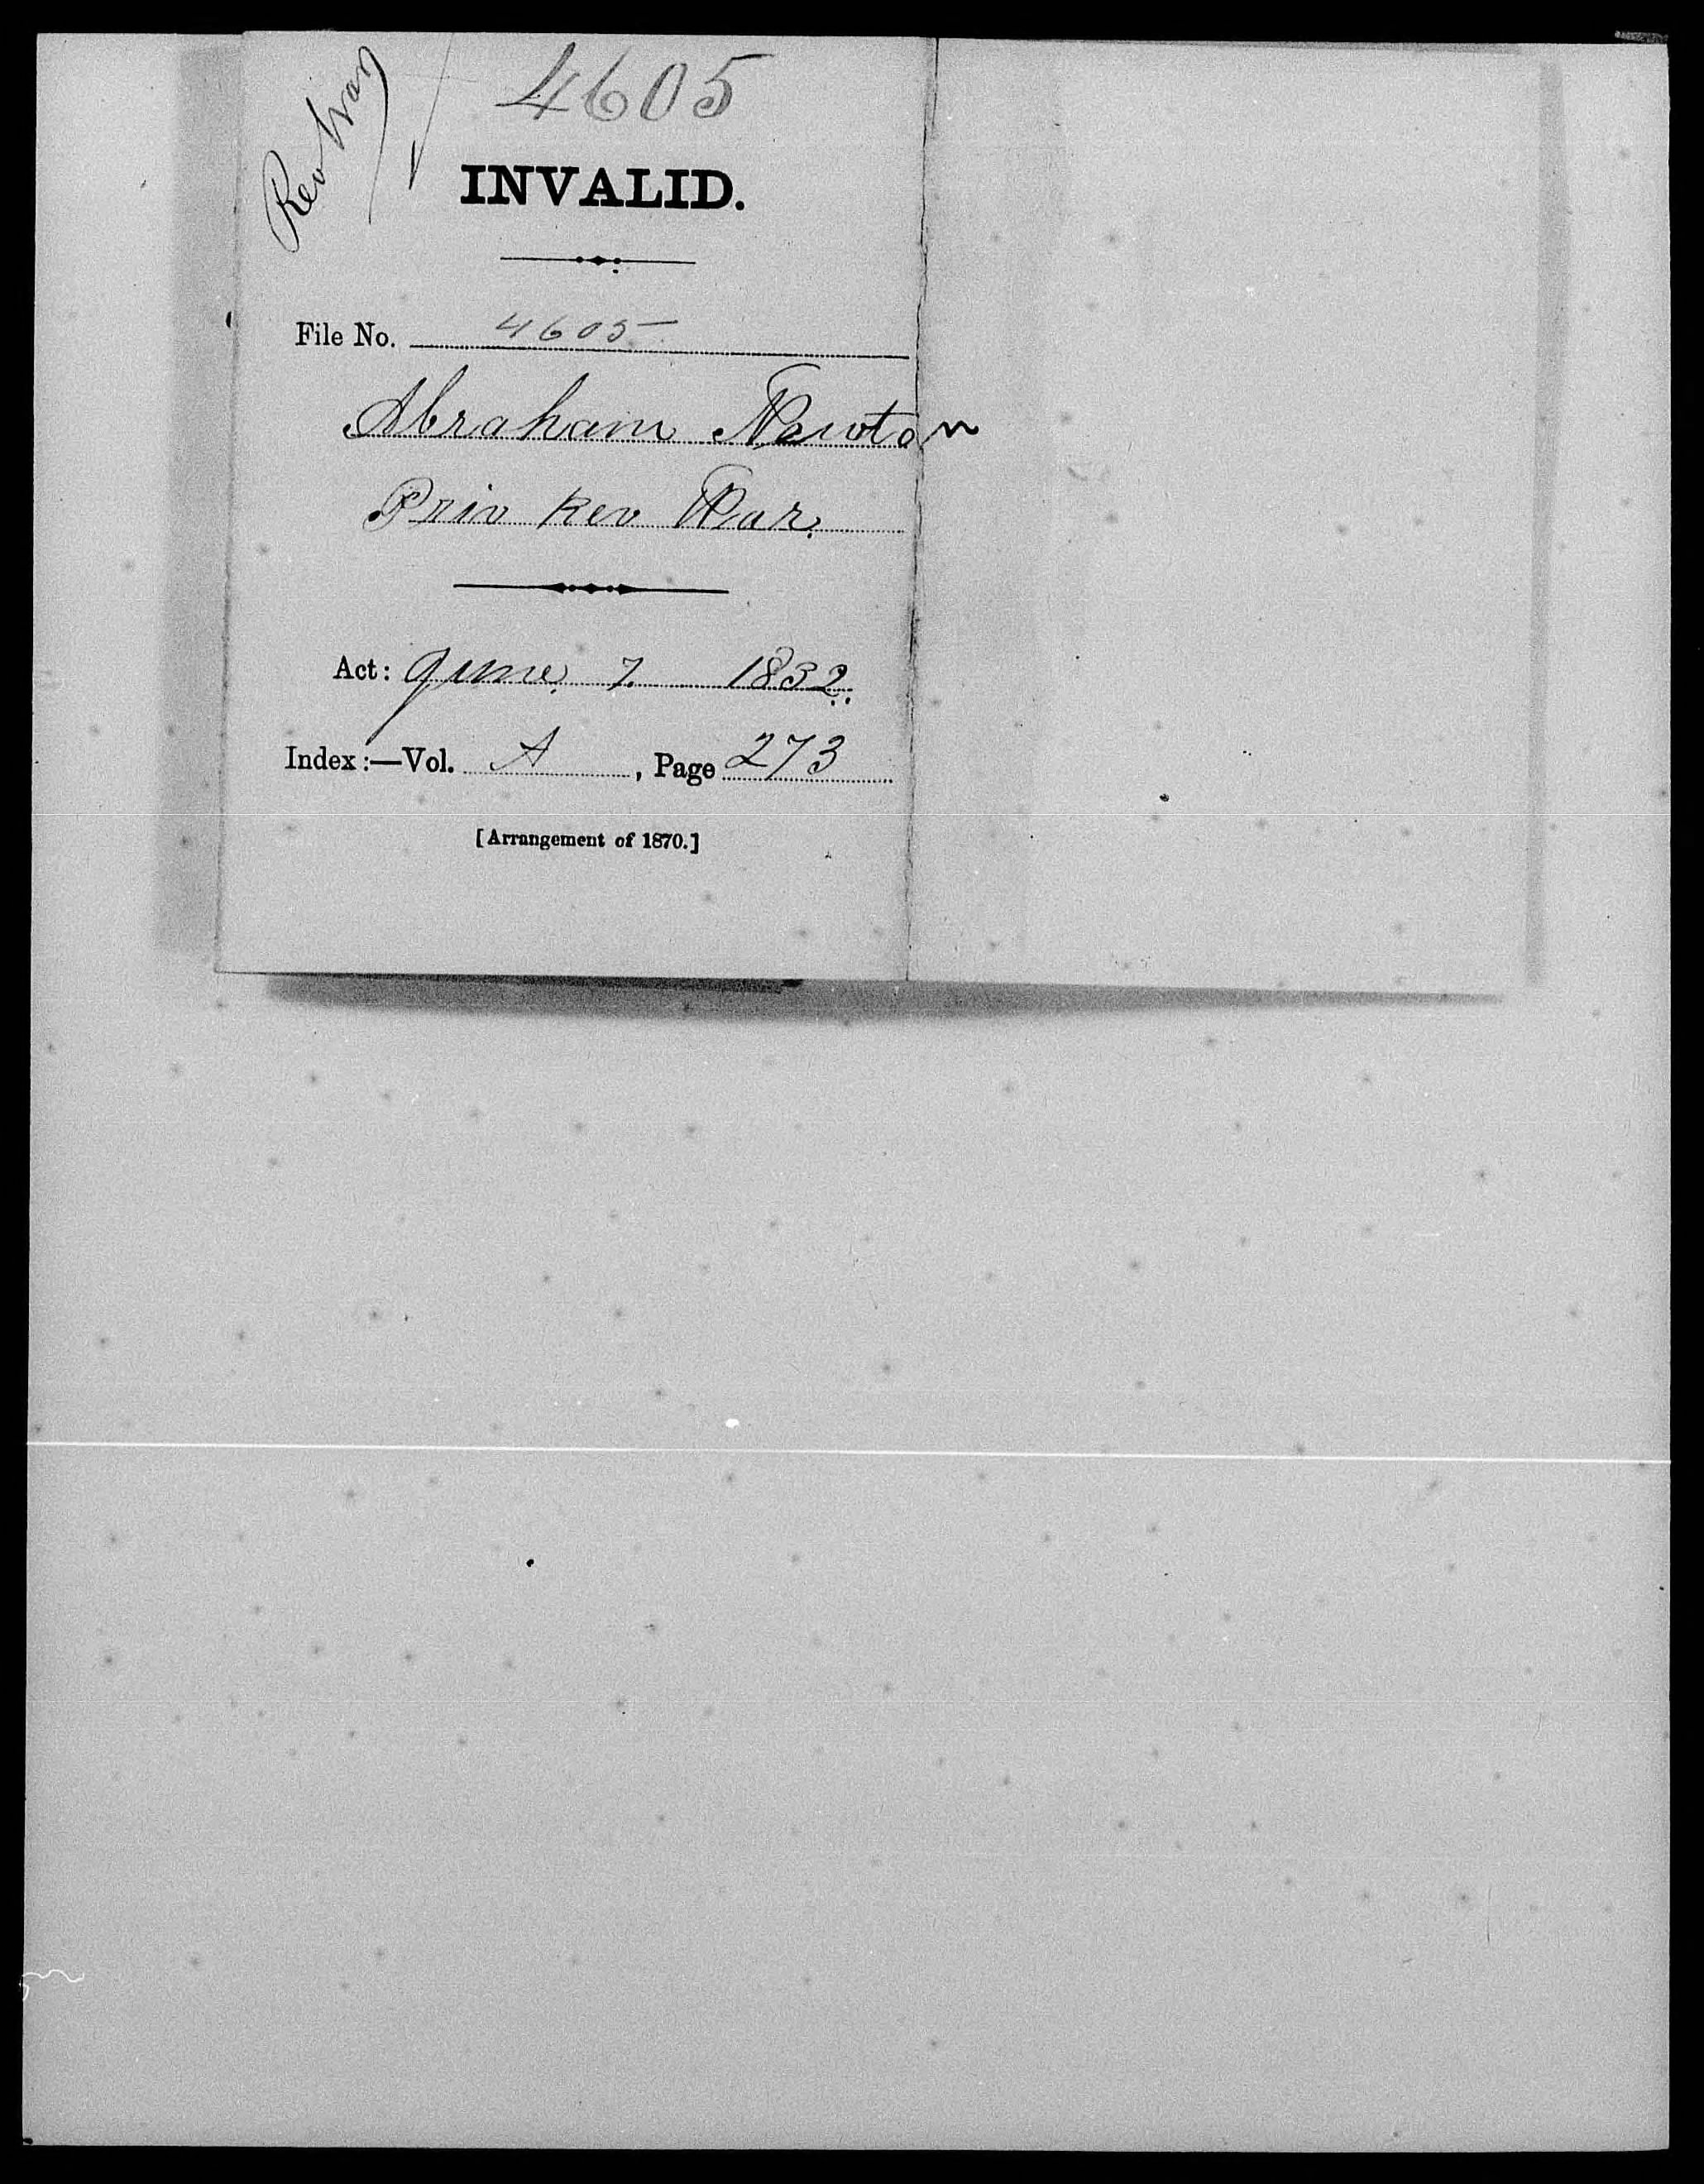 Rev War
4605
INVALID.
File No. 4605
Abraham Newton
Priv Rev War.
Act: June 7. 1832.
Index:—Vol. A, Page 273
[Arrangement of 1870.]